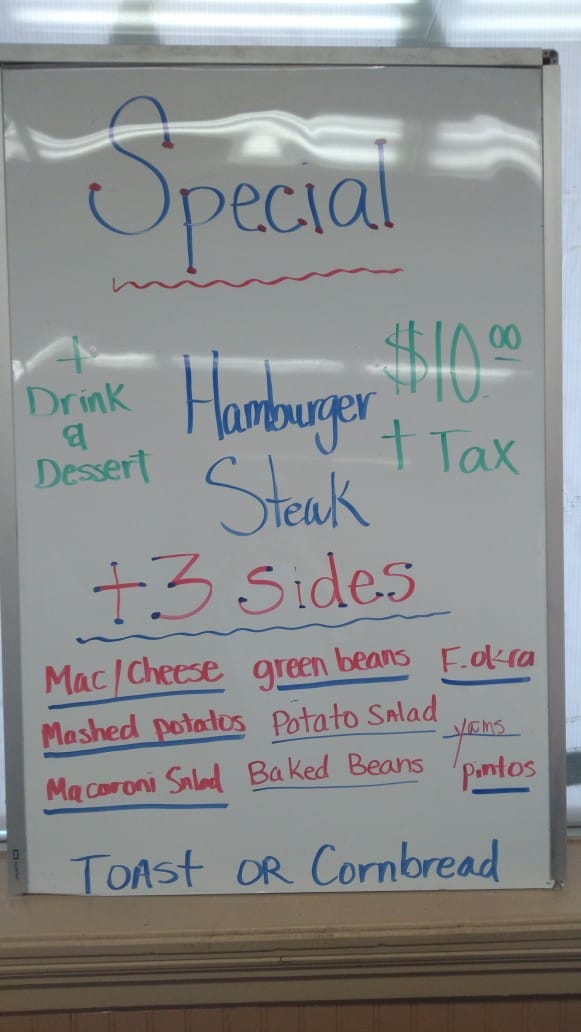 Special
+ Drink & Dessert
Hamburger Steak
$10.00 + Tax
+3 sides
Mac/Cheese green beans F.okra
Mashed potatos Potato Salad yams
Macaroni Salad Baked Beans pintos
Toast OR Cornbread